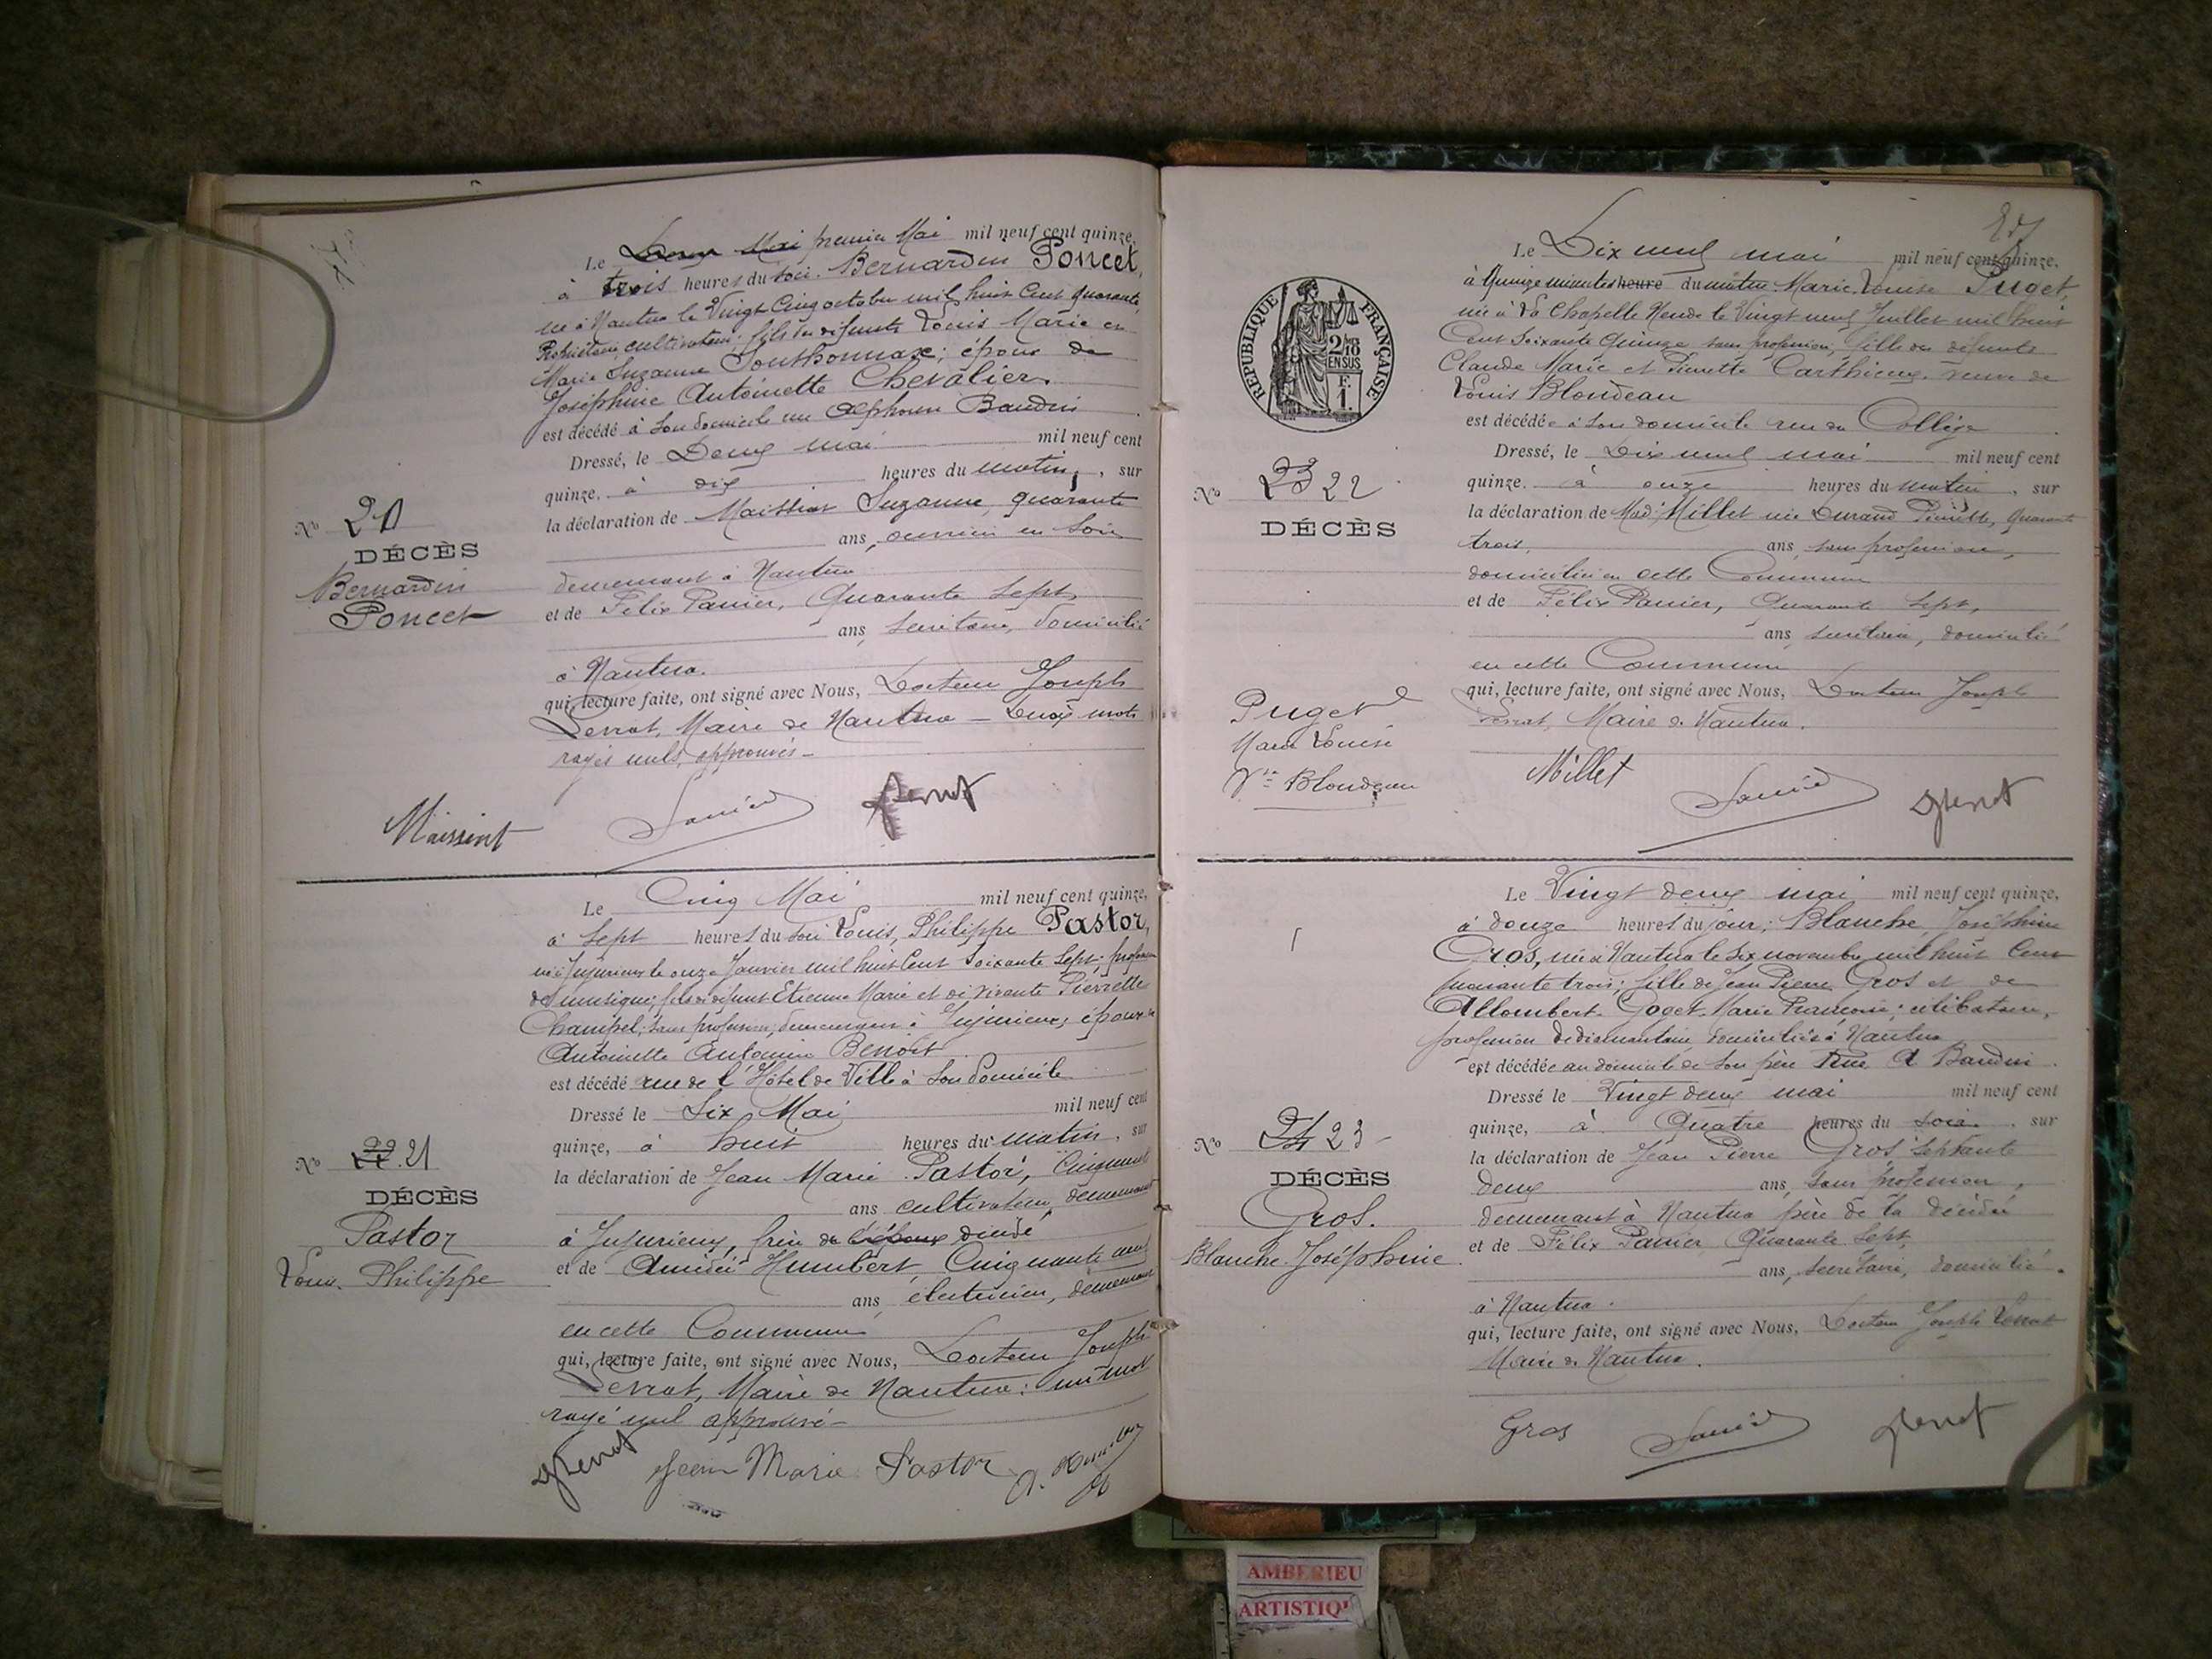 Le premier Mai mil neuf cent quinze,
à trois heures du soir Bernardin Poncet,
né à Nantua le Vingt Cinq octobre mil huit Cent quarante,
Propriétaire cultivateur, fils des défunts Louis Marie et
Marie Suzanne Jouthonnax; époux de
Joséphine Antoinette Chevalier
est décédé à son domicile rue Alphonse Baudin
Dressé, le Deux mai mil neuf cent
quinze, à dix heures du matin, sur
la déclaration de Maissiat Suzanne, quarante
ans, ouvrière en soie
demeurant à Nantua
et de Félix Panier, Quarante Sept
ans, secrétaire, domicilié
à Nantua.
qui, lecture faite, ont signé avec Nous, Docteur Joseph
Levrat, Maire de Nantua — Deux mots
rayés nuls, approuvés —
No 20
DÉCÈS
Bernardin
Poncet
Le Cinq Mai mil neuf cent quinze,
à Sept heures du soir Louis, Philippe Pastor,
né à Jujurieux le onze Janvier mil huit Cent Soixante Sept; professeur
de musique; fils de défunt Etienne Marie et de vivante Pierrette
Champel, sans profession, demeurant à Jujurieux; époux de
Antoinette Antonine Benoit
est décédé rue de l'Hôtel de Ville à son domicile
Dressé le Six Mai mil neuf cent
quinze, à huit heures du matin, sur
la déclaration de Jean Marie Pastor, Cinquante
ans cultivateur, demeurant
à Jujurieux, frère du décédé
et de Amédée Humbert, Cinquante
ans électricien, demeurant
en cette Commune
qui, lecture faite, ont signé avec Nous, Docteur Joseph
Levrat, Maire de Nantua: un mot
rayé nul approuvé —
Jean Marie Pastor
No 21
DÉCÈS
Pastor
Louis Philippe
Le Dix neuf mai mil neuf cent quinze,
à Quinze minutes heure du matin Marie Louise Puget,
née à La Chapelle Naude le Vingt neuf Juillet mil huit
Cent Soixante Quinze sans profession, fille des défunts
Claude Marie et Pierrette Carthieux veuve de
Louis Blondeau
est décédée à son domicile rue du Collège
Dressé, le Dix neuf mai mil neuf cent
quinze, à onze heures du matin, sur
la déclaration de Mad. Millet née Durand Pierrette, Quarante
trois, ans, sans profession,
domiciliée en cette Commune
et de Félix Panier, Quarante Sept,
ans, secrétaire, domicilié
en cette Commune
qui, lecture faite, ont signé avec Nous, Docteur Joseph
Levrat, Maire de Nantua.
Millet
RÉPUBLIQUE FRANÇAISE
2/10 EN SUS
F. 1.
No 22
DÉCÈS
Puget
Marie Louise
Vve Blondeau
Le Vingt deux mai mil neuf cent quinze,
à douze heures du jour; Blanche Joséphine
Gros, née à Nantua le six novembre mil huit Cent
quarante trois; fille de Jean Pierre Gros et de
Allombert-Goget Marie Françoise; célibataire,
profession de diamantaire domiciliée à Nantua
est décédée au domicile de son père Rue A Baudin
Dressé le Vingt deux mai mil neuf cent
quinze, à Quatre heures du soir, sur
la déclaration de Jean Pierre Gros Septante
deux ans, sans profession,
demeurant à Nantua père de la décédée
et de Félix Panier Quarante Sept
ans, secrétaire, domicilié
à Nantua.
qui, lecture faite, ont signé avec Nous, Docteur Joseph Levrat
Maire de Nantua.
Gros
No 23
DÉCÈS
Gros.
Blanche Joséphine
AMBERIEU
ARTISTIQ